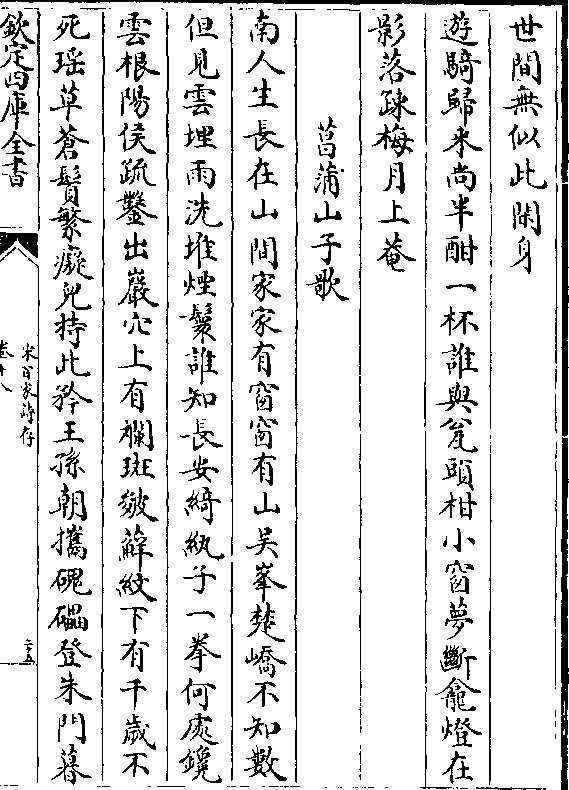 世間無似此閑身
遊騎歸来尚半酣一杯誰與瓮頭柑小窗夢斷龕燈在
影落疎梅月上菴
菖蒲山子歌
南人生長在山間家家有窗窗有山吳峯楚嶠不知數
但見雲埋雨洗堆煙鬟誰知長安綺紈子一拳何處鑱
雲根陽侯疏鑿出巖穴上有斕斑皴蘚紋下有千歲不
死瑶草蒼鬢繁癡兒持此矜王孫朝攜磈礧登朱門暮
欽定四庫全書
宋百家詩存
卷十八
二五